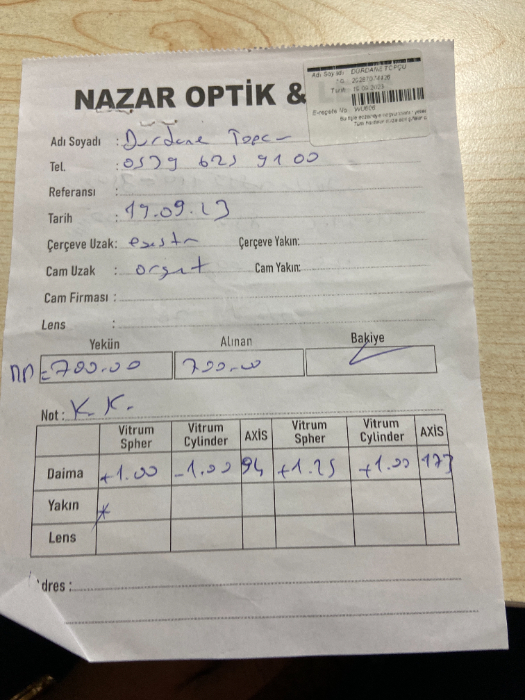 NAZAR OPTİK &
Adı Soyadı DÜRDANE TOPÇU
Adı Soyadı : Durdane Topcu
Tel. : 0539 625 9100
Referansı :
Tarih : 19.09.23
Çerçeve Uzak: Çerçeve Yakın:
Cam Uzak : orgat Cam Yakın:
Cam Firması :
Lens :
Yekün Alınan Bakiye
= 700.00 700.00
Not : K.K.
Vitrum Spher Vitrum Cylinder AXİS Vitrum Spher Vitrum Cylinder AXİS
Daima +1.00 -1.00 94 +1.25 +1.00 177
Yakın *
Lens
dres :